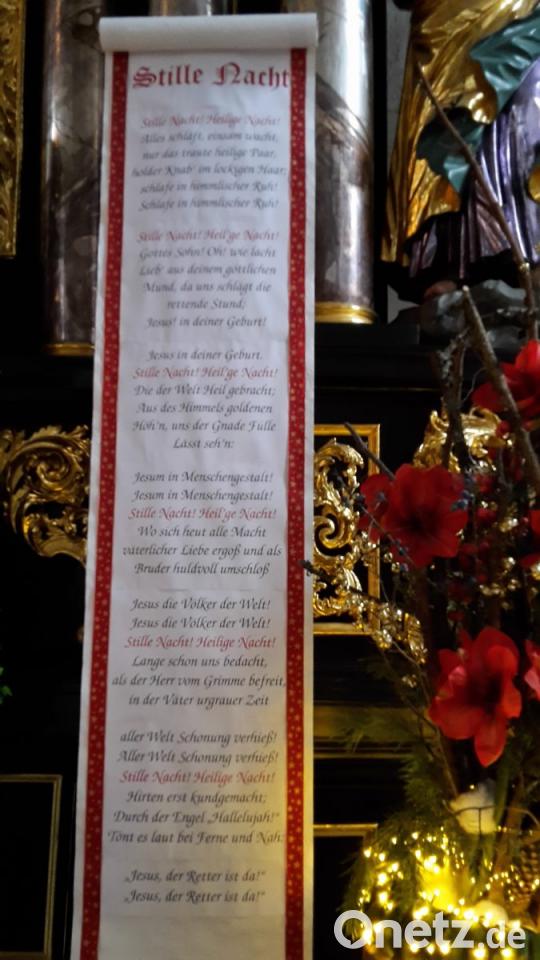 Stille Nacht
Stille Nacht! Heilige Nacht!
Alles schläft, einsam wacht,
nur das traute heilige Paar,
holder Knab' im lockigen Haar;
schlafe in himmlischer Ruh!
Schlafe in himmlischer Ruh!
Stille Nacht! Heil'ge Nacht!
Gottes Sohn! Oh! wie lacht
Lieb' aus deinem göttlichen
Mund, da uns schlägt die
rettende Stund;
Jesus! in deiner Geburt!
Jesus in deiner Geburt.
Stille Nacht! Heil'ge Nacht!
Die der Welt Heil gebracht;
Aus des Himmels goldenen
Höh'n, uns der Gnade Fülle
Lässt seh'n:
Jesum in Menschengestalt!
Jesum in Menschengestalt!
Stille Nacht! Heil'ge Nacht!
Wo sich heut alle Macht
väterlicher Liebe ergoß und als
Bruder huldvoll umschloß
Jesus die Völker der Welt!
Jesus die Völker der Welt!
Stille Nacht! Heilige Nacht!
Lange schon uns bedacht,
als der Herr vom Grimme befreit,
in der Väter urgrauer Zeit
aller Welt Schonung verhieß!
Aller Welt Schonung verhieß!
Stille Nacht! Heilige Nacht!
Hirten erst kundgemacht;
Durch der Engel „Hallelujah!“
Tönt es laut bei Ferne und Nah:
„Jesus, der Retter ist da!“
„Jesus, der Retter ist da!“
Onetz.de